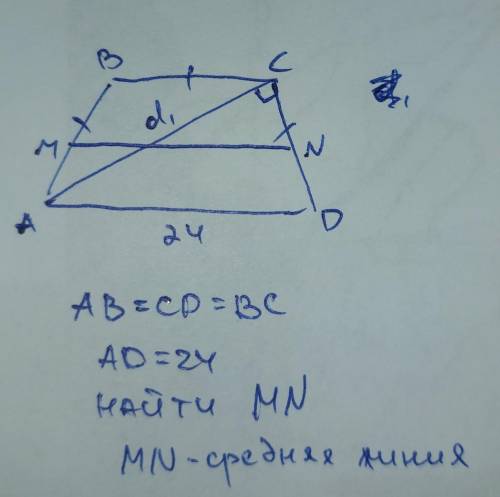 B C
d₁
M N
A D
24
AB=CD=BC
AD=24
НАЙТИ MN
MN-средняя линия